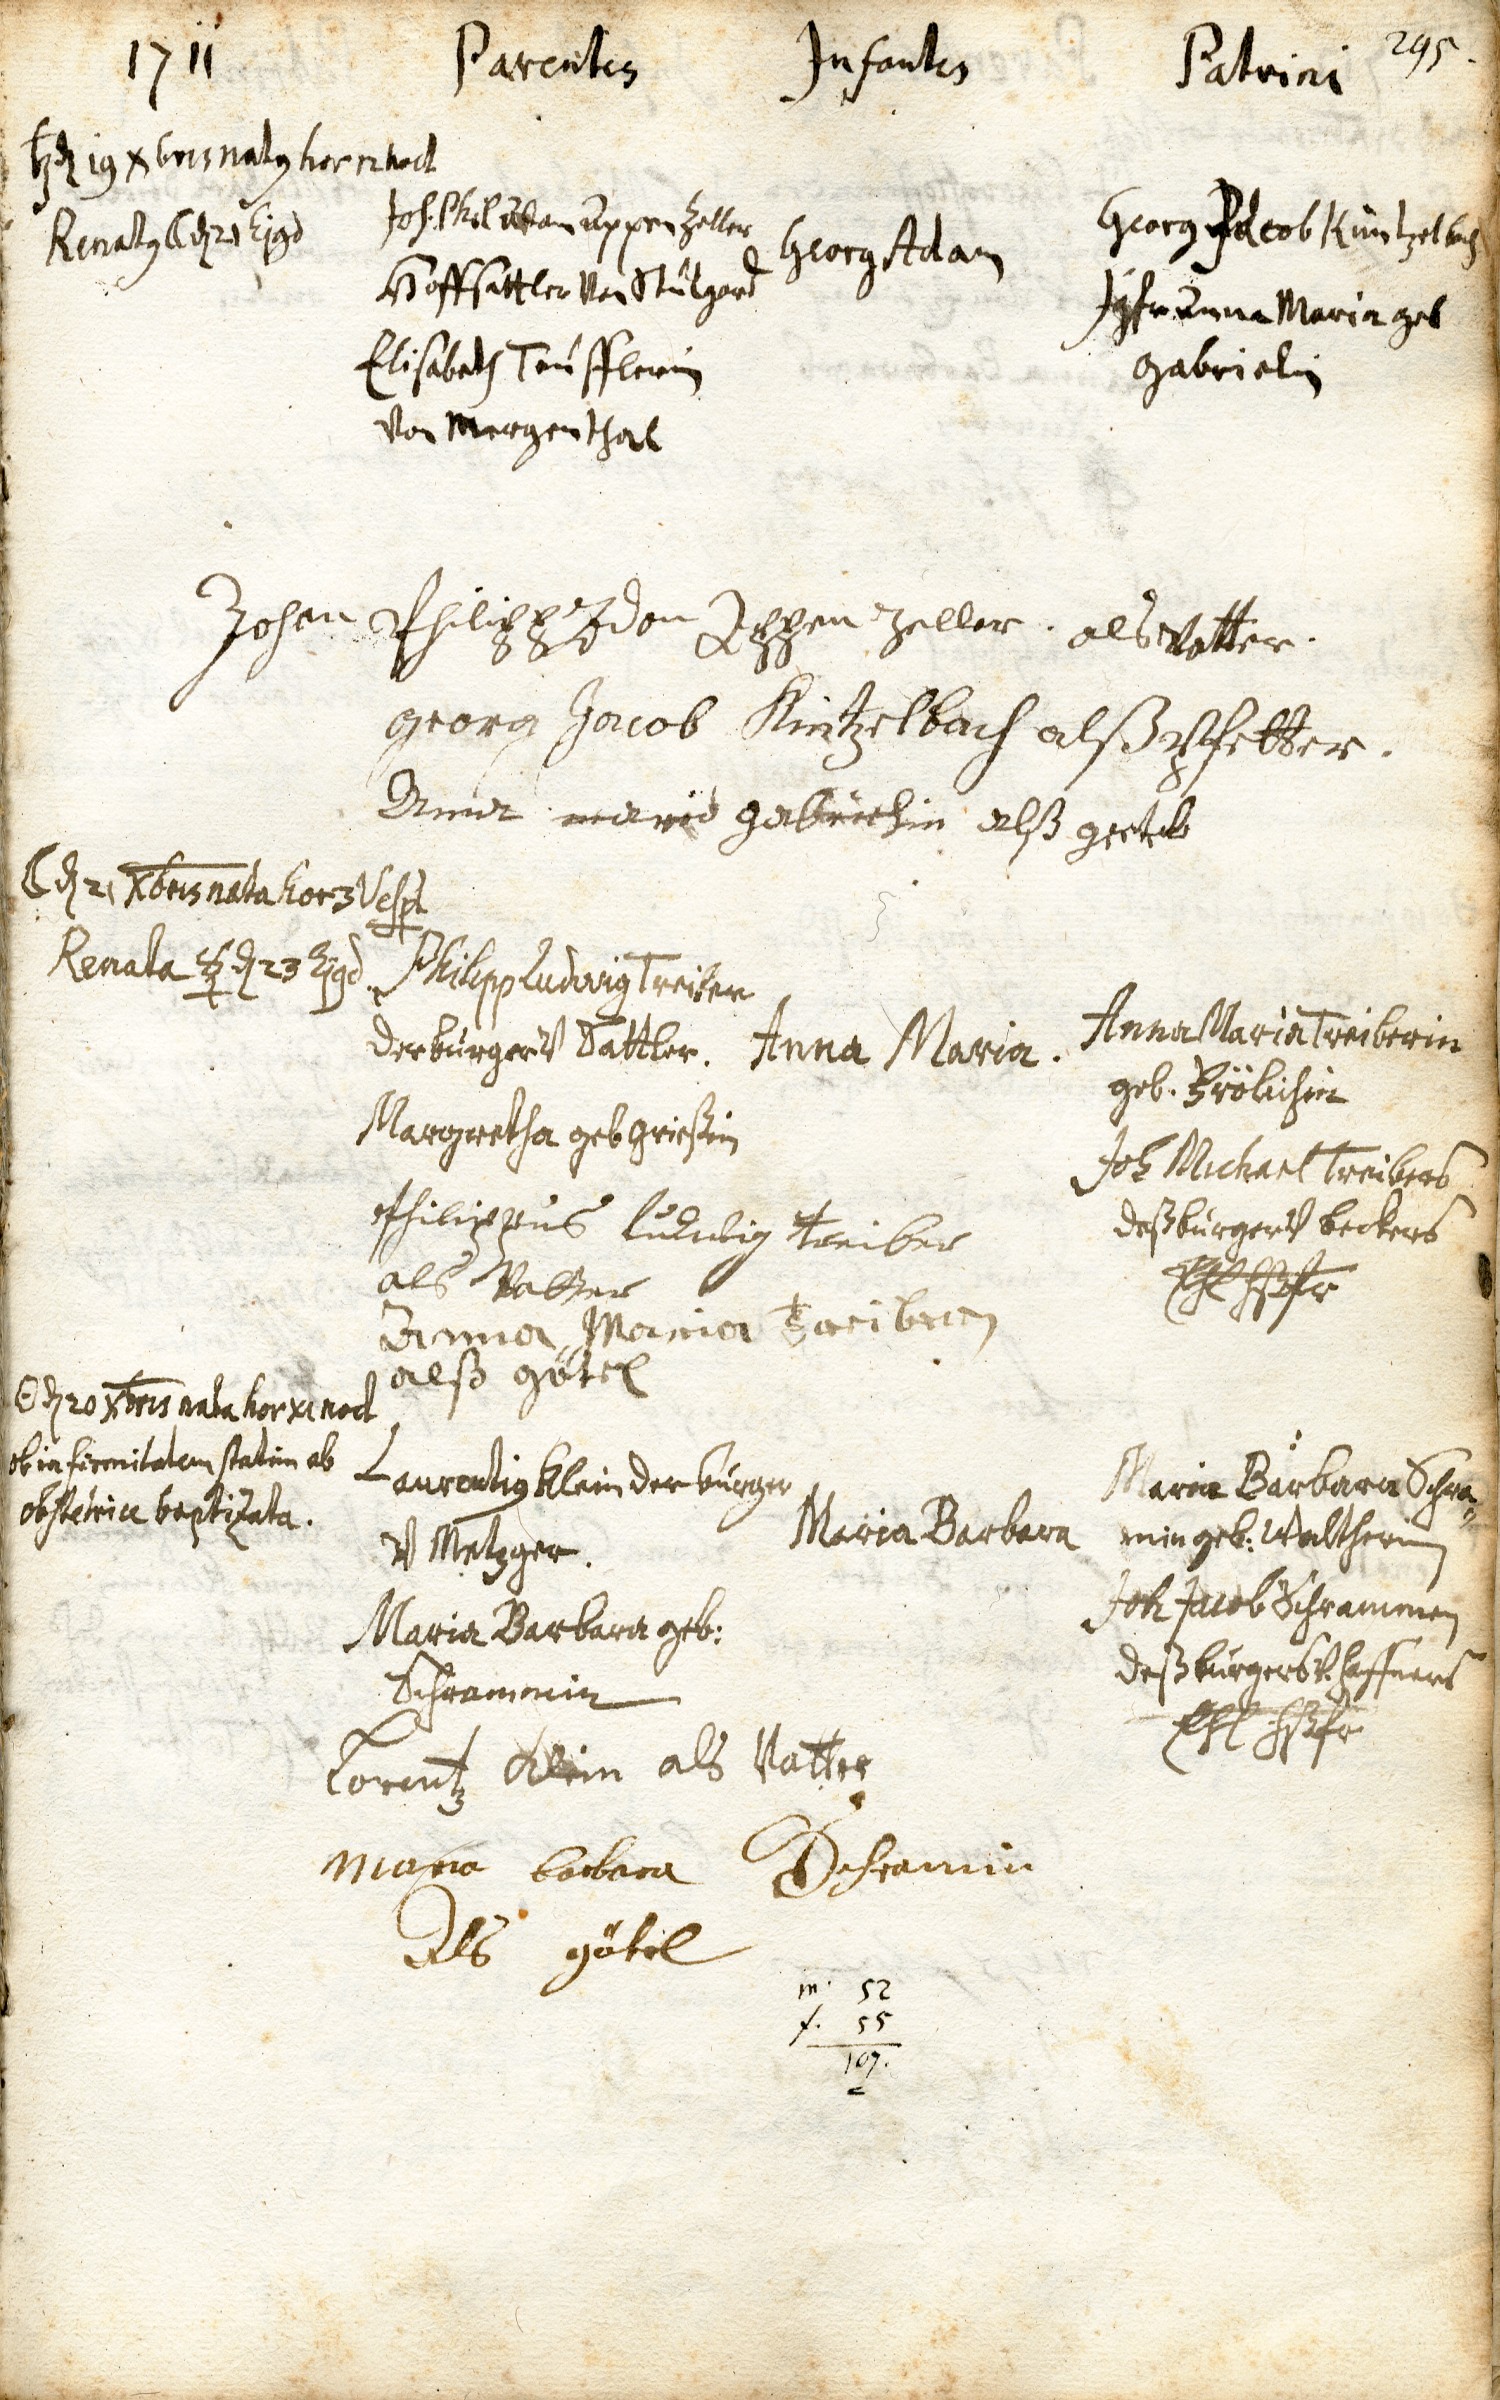 1711 Parentes Infantes Patrini 295.
♄ d 19 Xbris natꝰ hor 12 noct
Renatꝰ ☾ d 21 Ejꝰd
Joh. Phil Adam Appenzeller
Hoffsattler von Stutgard
Elisabeth Teufflerin
von Mergenthal
Georg Adam
Georg Jacob Küntzelbach
Jgfr Anna Maria geb
Gabrielin
Johan Philipp Adon Appenzeller. als Vatter.
georg Jacob Kintzelbach alß Pfetter.
Anna maria gabrielin alß
☾ d 21 Xbris nata hor 3 Vesp
Renata ☿ d 23 Ejꝰd.
Philipp Ludwig Treiber
der burger v Sattler.
Margretha geb Grießin
Anna Maria.
Anna Maria Treiberin
geb. Frölichin
Joh Michael Treibers
deß burgers v beckers
Ehl Hßfr
Philippus Ludwig treiber
als Vatter
Anna Maria Treiberin
alß götel
☉ d 20 Xbris nata hor XI noct
ob infirmitatem statim ab
obstetrice baptizata.
Laurentiꝰ Klein der burger
v Metzger.
Maria Barbara geb:
Schrammin
Maria Barbara
Maria Barbara Schra=
min geb: Waltherin
Joh Jacob Schrammen
deß burgers v. haffners
Ehl Hßfr
Lorentz Klein als Vatter
maria barbara Schramin
Als götel
m. 52
f. 55
107.